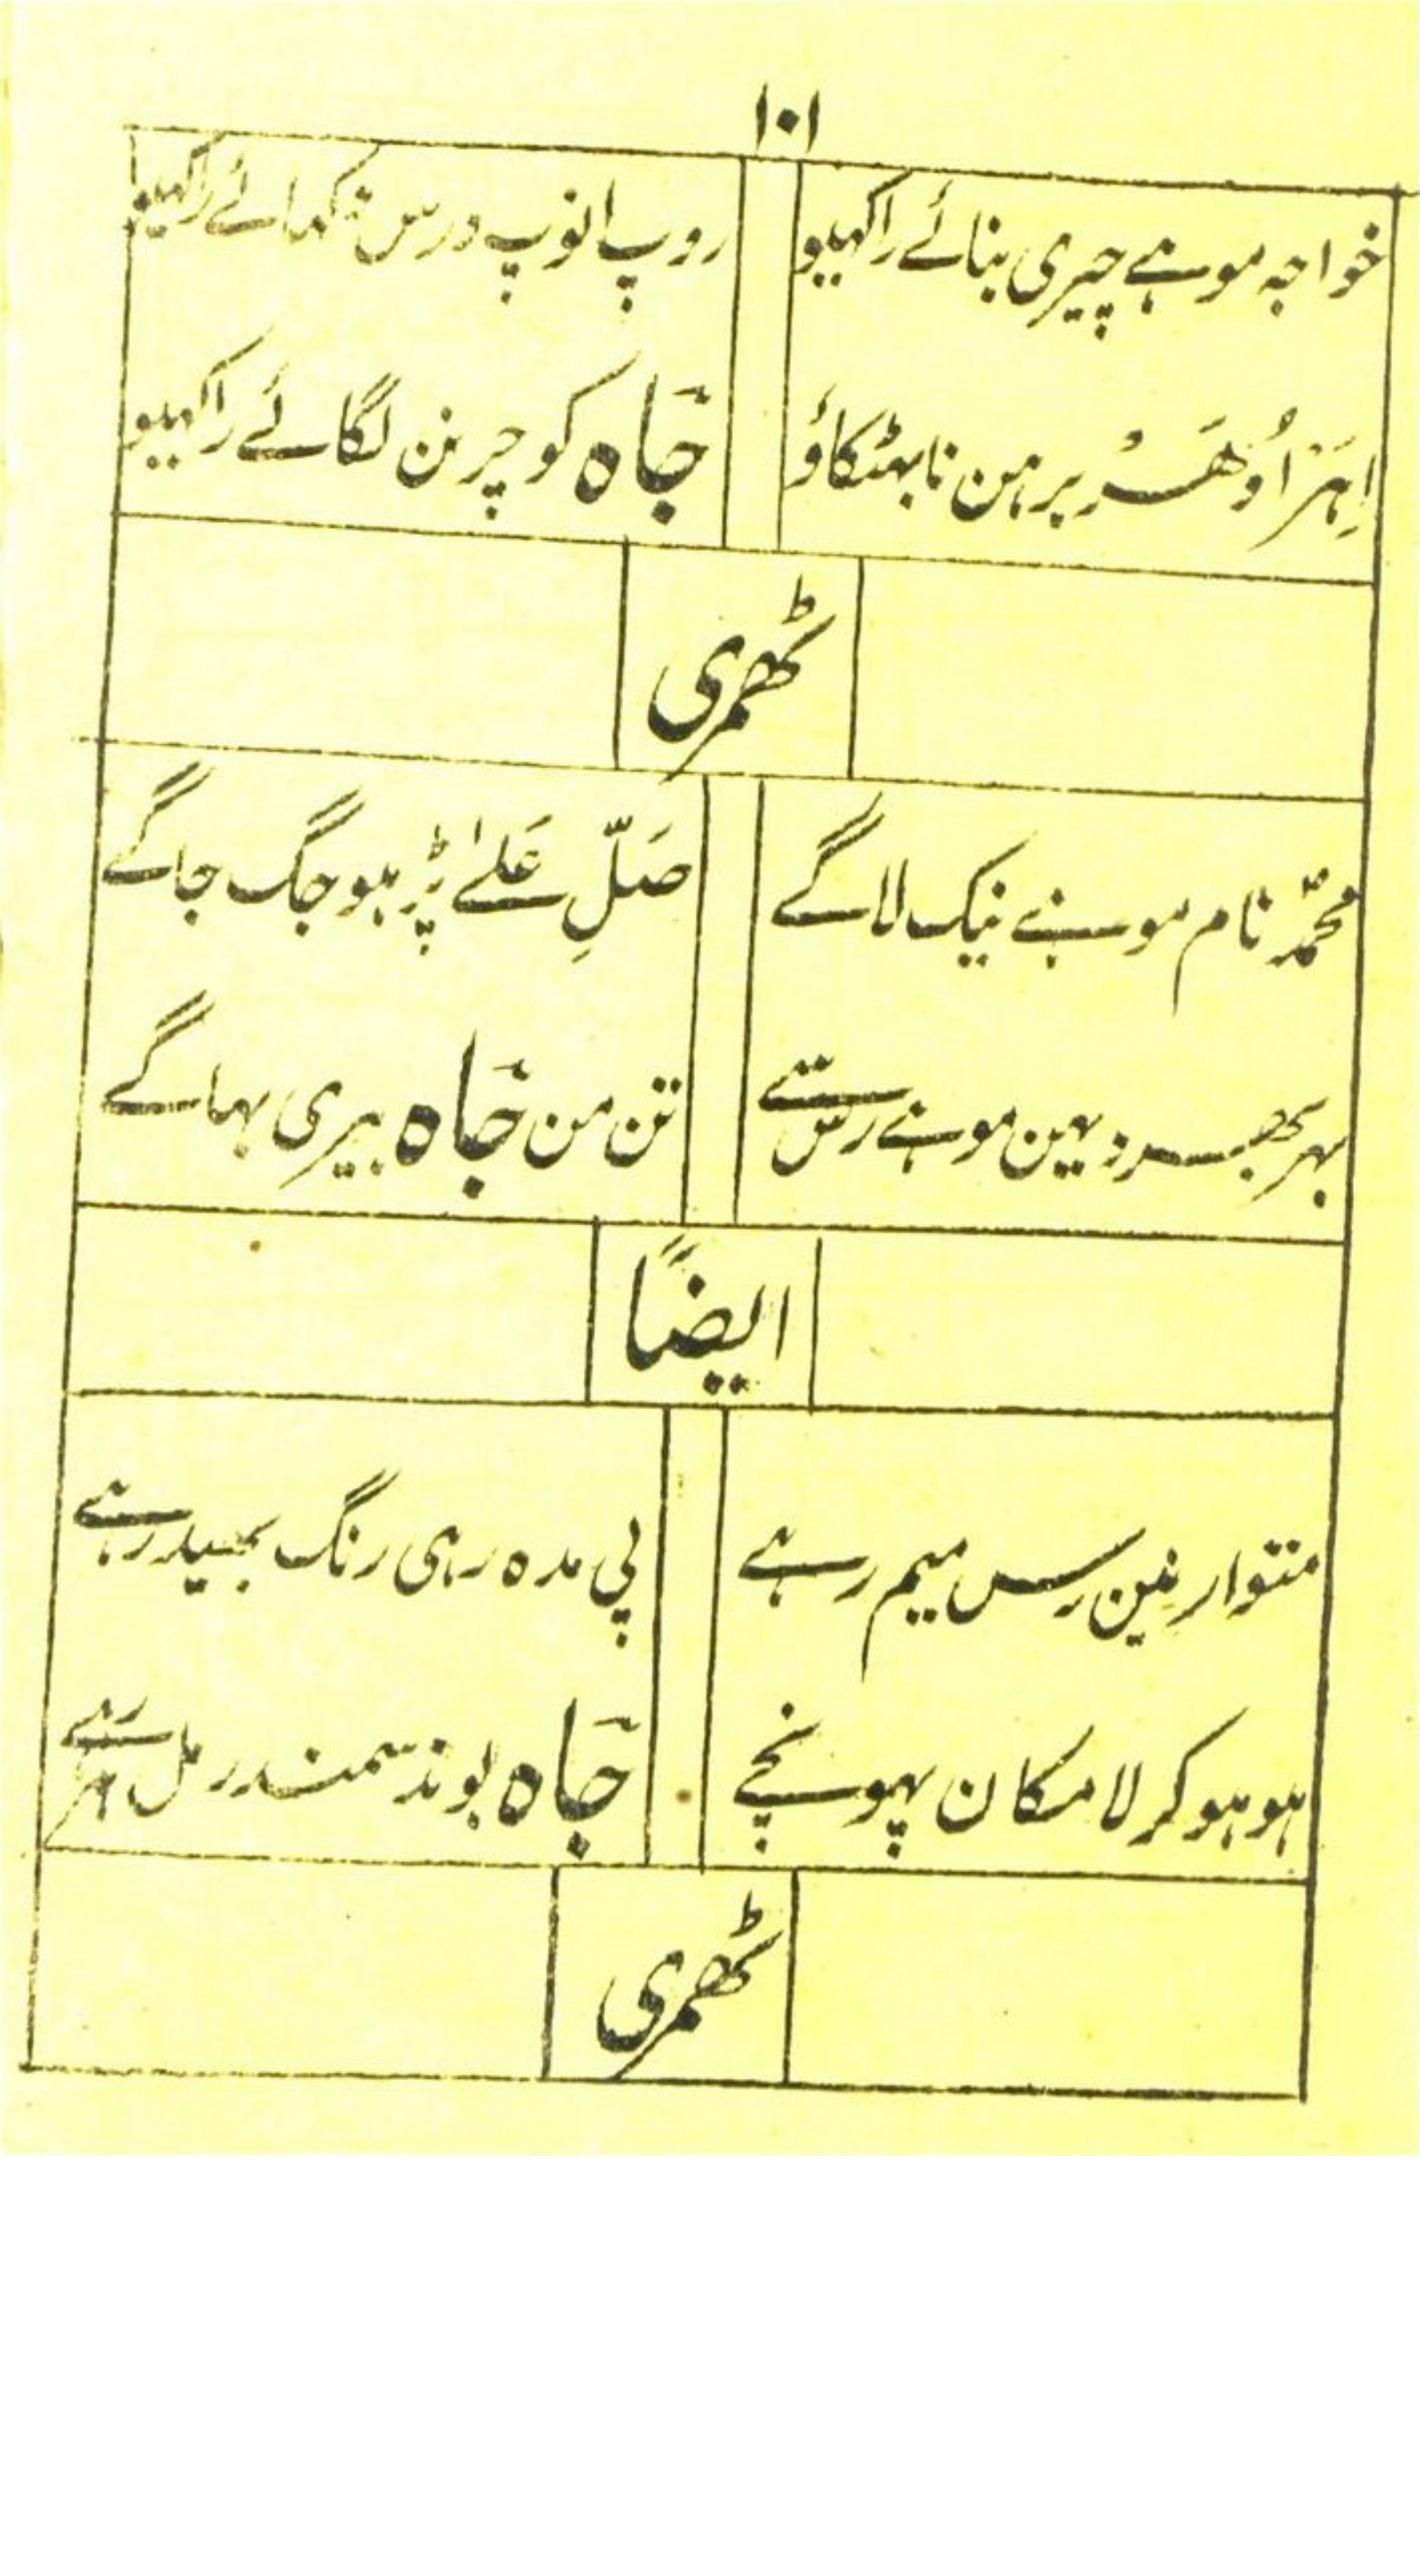 ۱۰۱
خواجہ موہے چیری بنائے راکھیو
روپ انوپ درس دکھائے راکھیو
اِہَر اُوھَر پرہن نا بھٹکاؤ
جَاہ کو چرنن لگائے راکھیو
ٹھمری
محمّد نام موہنے نیک لاگے
صَلِّ عَلےٰ پڑہو جگ جاگے
بہر بھر دیہین موہنے رس
تن من جَاہ پیری بہاگے
ایضًا
متوار نین رس میم رہے
پی مدہ رہی رنگ بھید رہے
ہو ہو کر لامکان پہونچے
جَاہ بوند سمندر مل رہے
ٹھمری